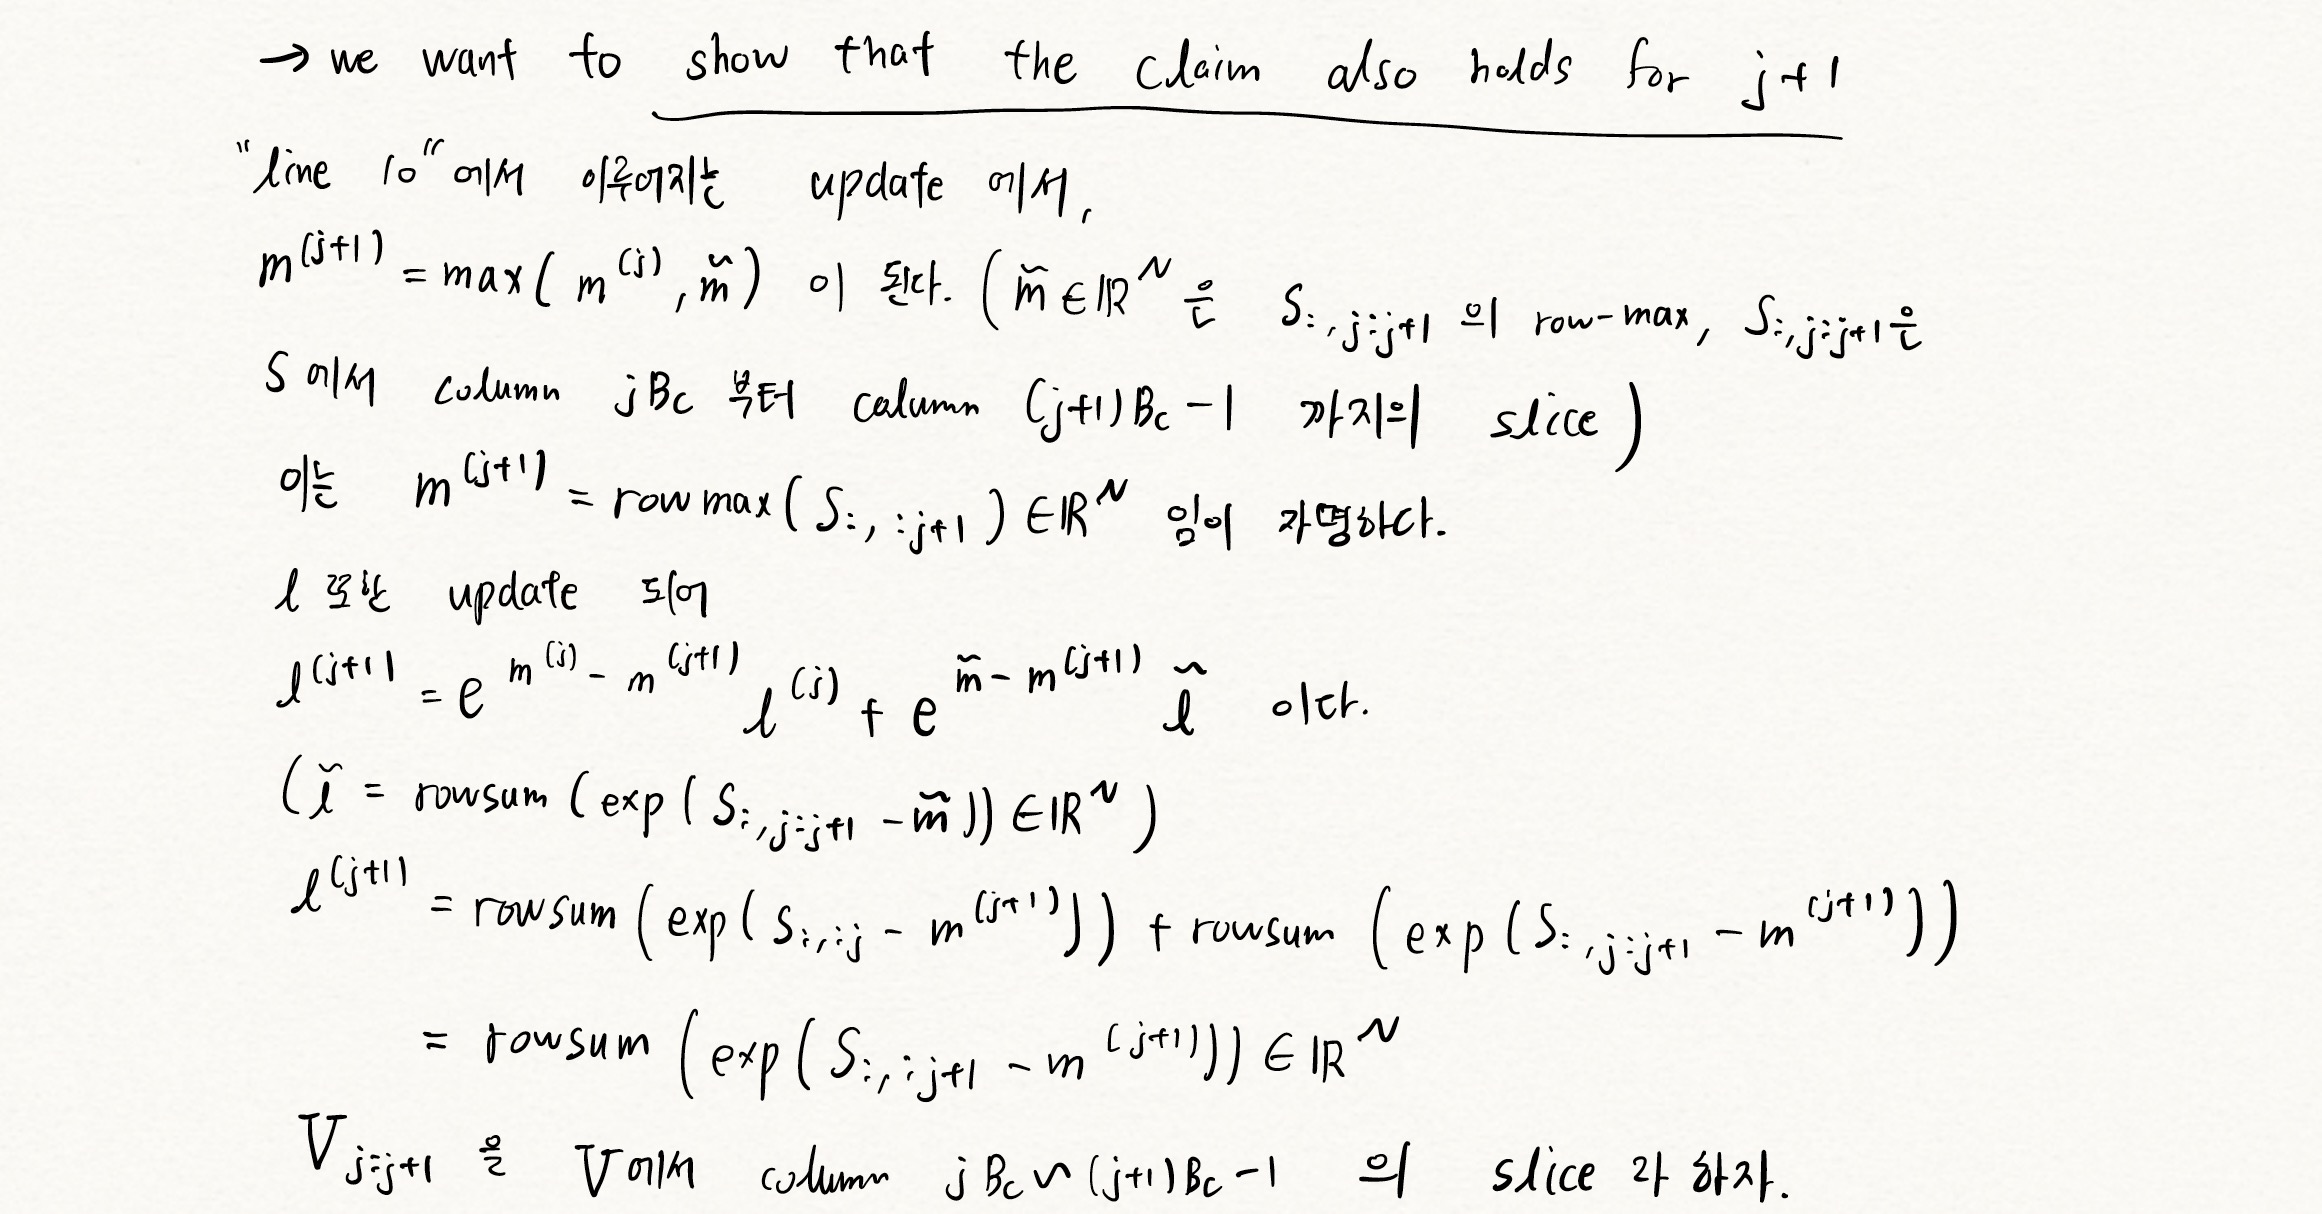 → we want to show that the claim also holds for j+1
"line 10"에서 이루어지는 update 에서,
m^(j+1) = max( m^(j), m̃ ) 이 된다. ( m̃ ∈ ℝ^N 은 S_:,j:j+1 의 row-max, S_:,j:j+1 은
S 에서 column jB_c 부터 column (j+1)B_c -1 까지의 slice )
이는 m^(j+1) = rowmax( S_:,:j+1 ) ∈ ℝ^N 임이 자명하다.
l 또한 update 되어
l^(j+1) = e^(m^(j) - m^(j+1)) l^(j) + e^(m̃ - m^(j+1)) l̃ 이다.
( l̃ = rowsum ( exp ( S_:,j:j+1 - m̃ )) ∈ ℝ^N )
l^(j+1) = rowsum ( exp ( S_:,:j - m^(j+1) )) + rowsum ( exp ( S_:,j:j+1 - m^(j+1) ))
= rowsum ( exp ( S_:,:j+1 - m^(j+1) )) ∈ ℝ^N
V_j:j+1 을 V에서 column jB_c ~ (j+1)B_c -1 의 slice 라 하자.